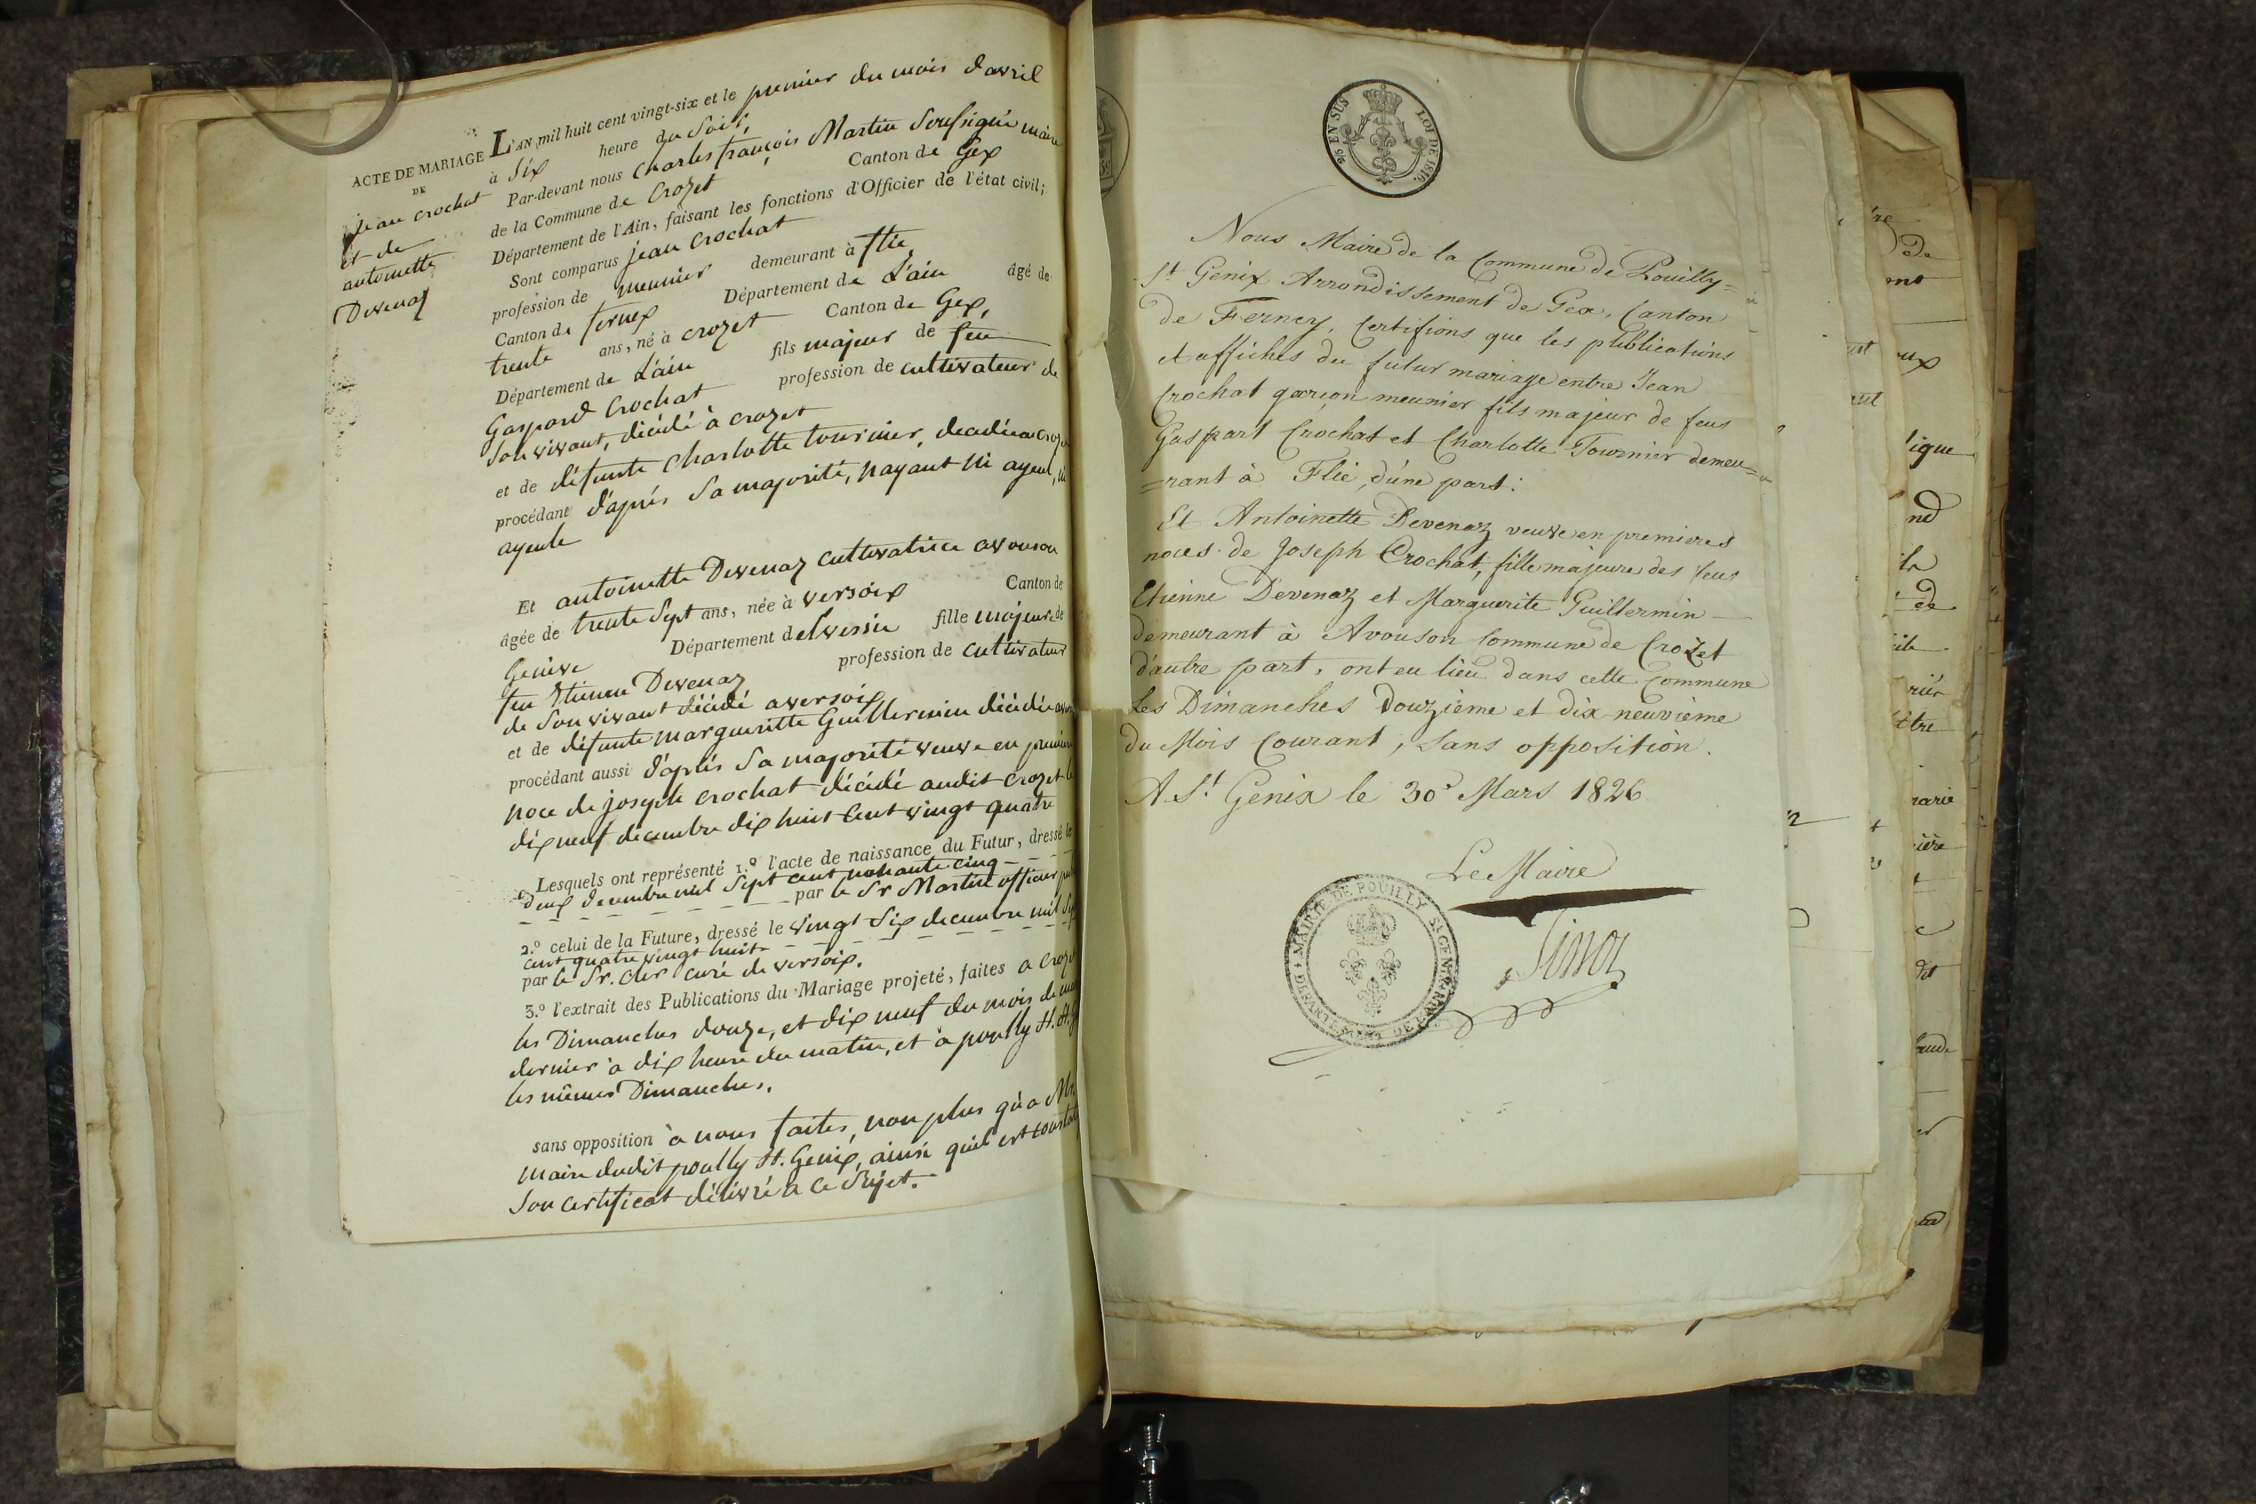 ACTE DE MARIAGE
DE
jean crochat
et de
antoinette
Devenaz
L'AN mil huit cent vingt-six et le premier du mois davril
à Six heure du Soir,
Par-devant nous Charles françois Martin Soussigné maire
de la Commune de Crozet Canton de Gex
Département de l'Ain, faisant les fonctions d'Officier de l'état civil;
Sont comparus jean Crochat
profession de meunier demeurant à flie,
Canton de fernex Département de L'ain âgé de
trente ans, né à crozet Canton de Gex,
Département de L'ain fils majeur de feu
Gaspard Crochat profession de cultivateur de
Son vivant, décédé à crozet
et de défunte Charlotte tournier, decedée a
procédant d'aprés Sa majorité, nayant ni ayeul, ni
ayeule
Et antoinette Devenaz cultivatrice avouson
âgée de trente Sept ans, née à versoix Canton de
Genève Département de fille majeure de
feu Etienne Devenaz profession de cultivateur
de Son vivant décédé a versoix
et de défunte margueritte Guillermin décédée
procédant aussi d'aprés Sa majorité veuve en
noce de joseph crochat décédé audit Crozet le
dix neuf decembre dix huit Cent vingt quatre
Lesquels ont représenté 1.º l'acte de naissance du Futur, dressé le
deux decembre mil Sept cent nonante cinq
par le Sr Martin officier
2.º celui de la Future, dressé le vingt Six decembre mil
cent quatre vingt huit
par le Sr. curé de versoix.
3.º l'extrait des Publications du Mariage projeté, faites a
les Dimanches douze, et dix neuf du mois de
dernier à dix heure du matin, et à poully St.
les mêmes Dimanches.
sans opposition à nous faites, non plus qu'a
maire dudit poully St. Genix, ainsi quil est
Son certificat délivré a ce Sujet.
26 EN SUS
LOI DE 1816.
Nous Maire de la Commune de Pouilly=
St Genix Arrondissement de Gex, Canton
de Ferney, Certifions que les publications
et affiches du futur mariage entre Jean
Crochat garçon meunier fils majeur de feus
Gaspart Crochat et Charlotte Tournier demeu=
=rant à Flie, d'une part:
Et Antoinette Devenaz veuve en premieres
noces de Joseph Crochat, fille majeure des feus
Etienne Devenaz et Marguerite Guillermin
demeurant à Avouson Commune de Crozet
d'autre part, ont eu lieu dans cette Commune
Les Dimanches Douzième et dix-neuvième
du Mois Courant, sans opposition.
A St. Genix le 30e Mars 1826
Le Maire
MAIRIE DE POUILLY ST GENIX
DEPARTEMENT DE L'AIN